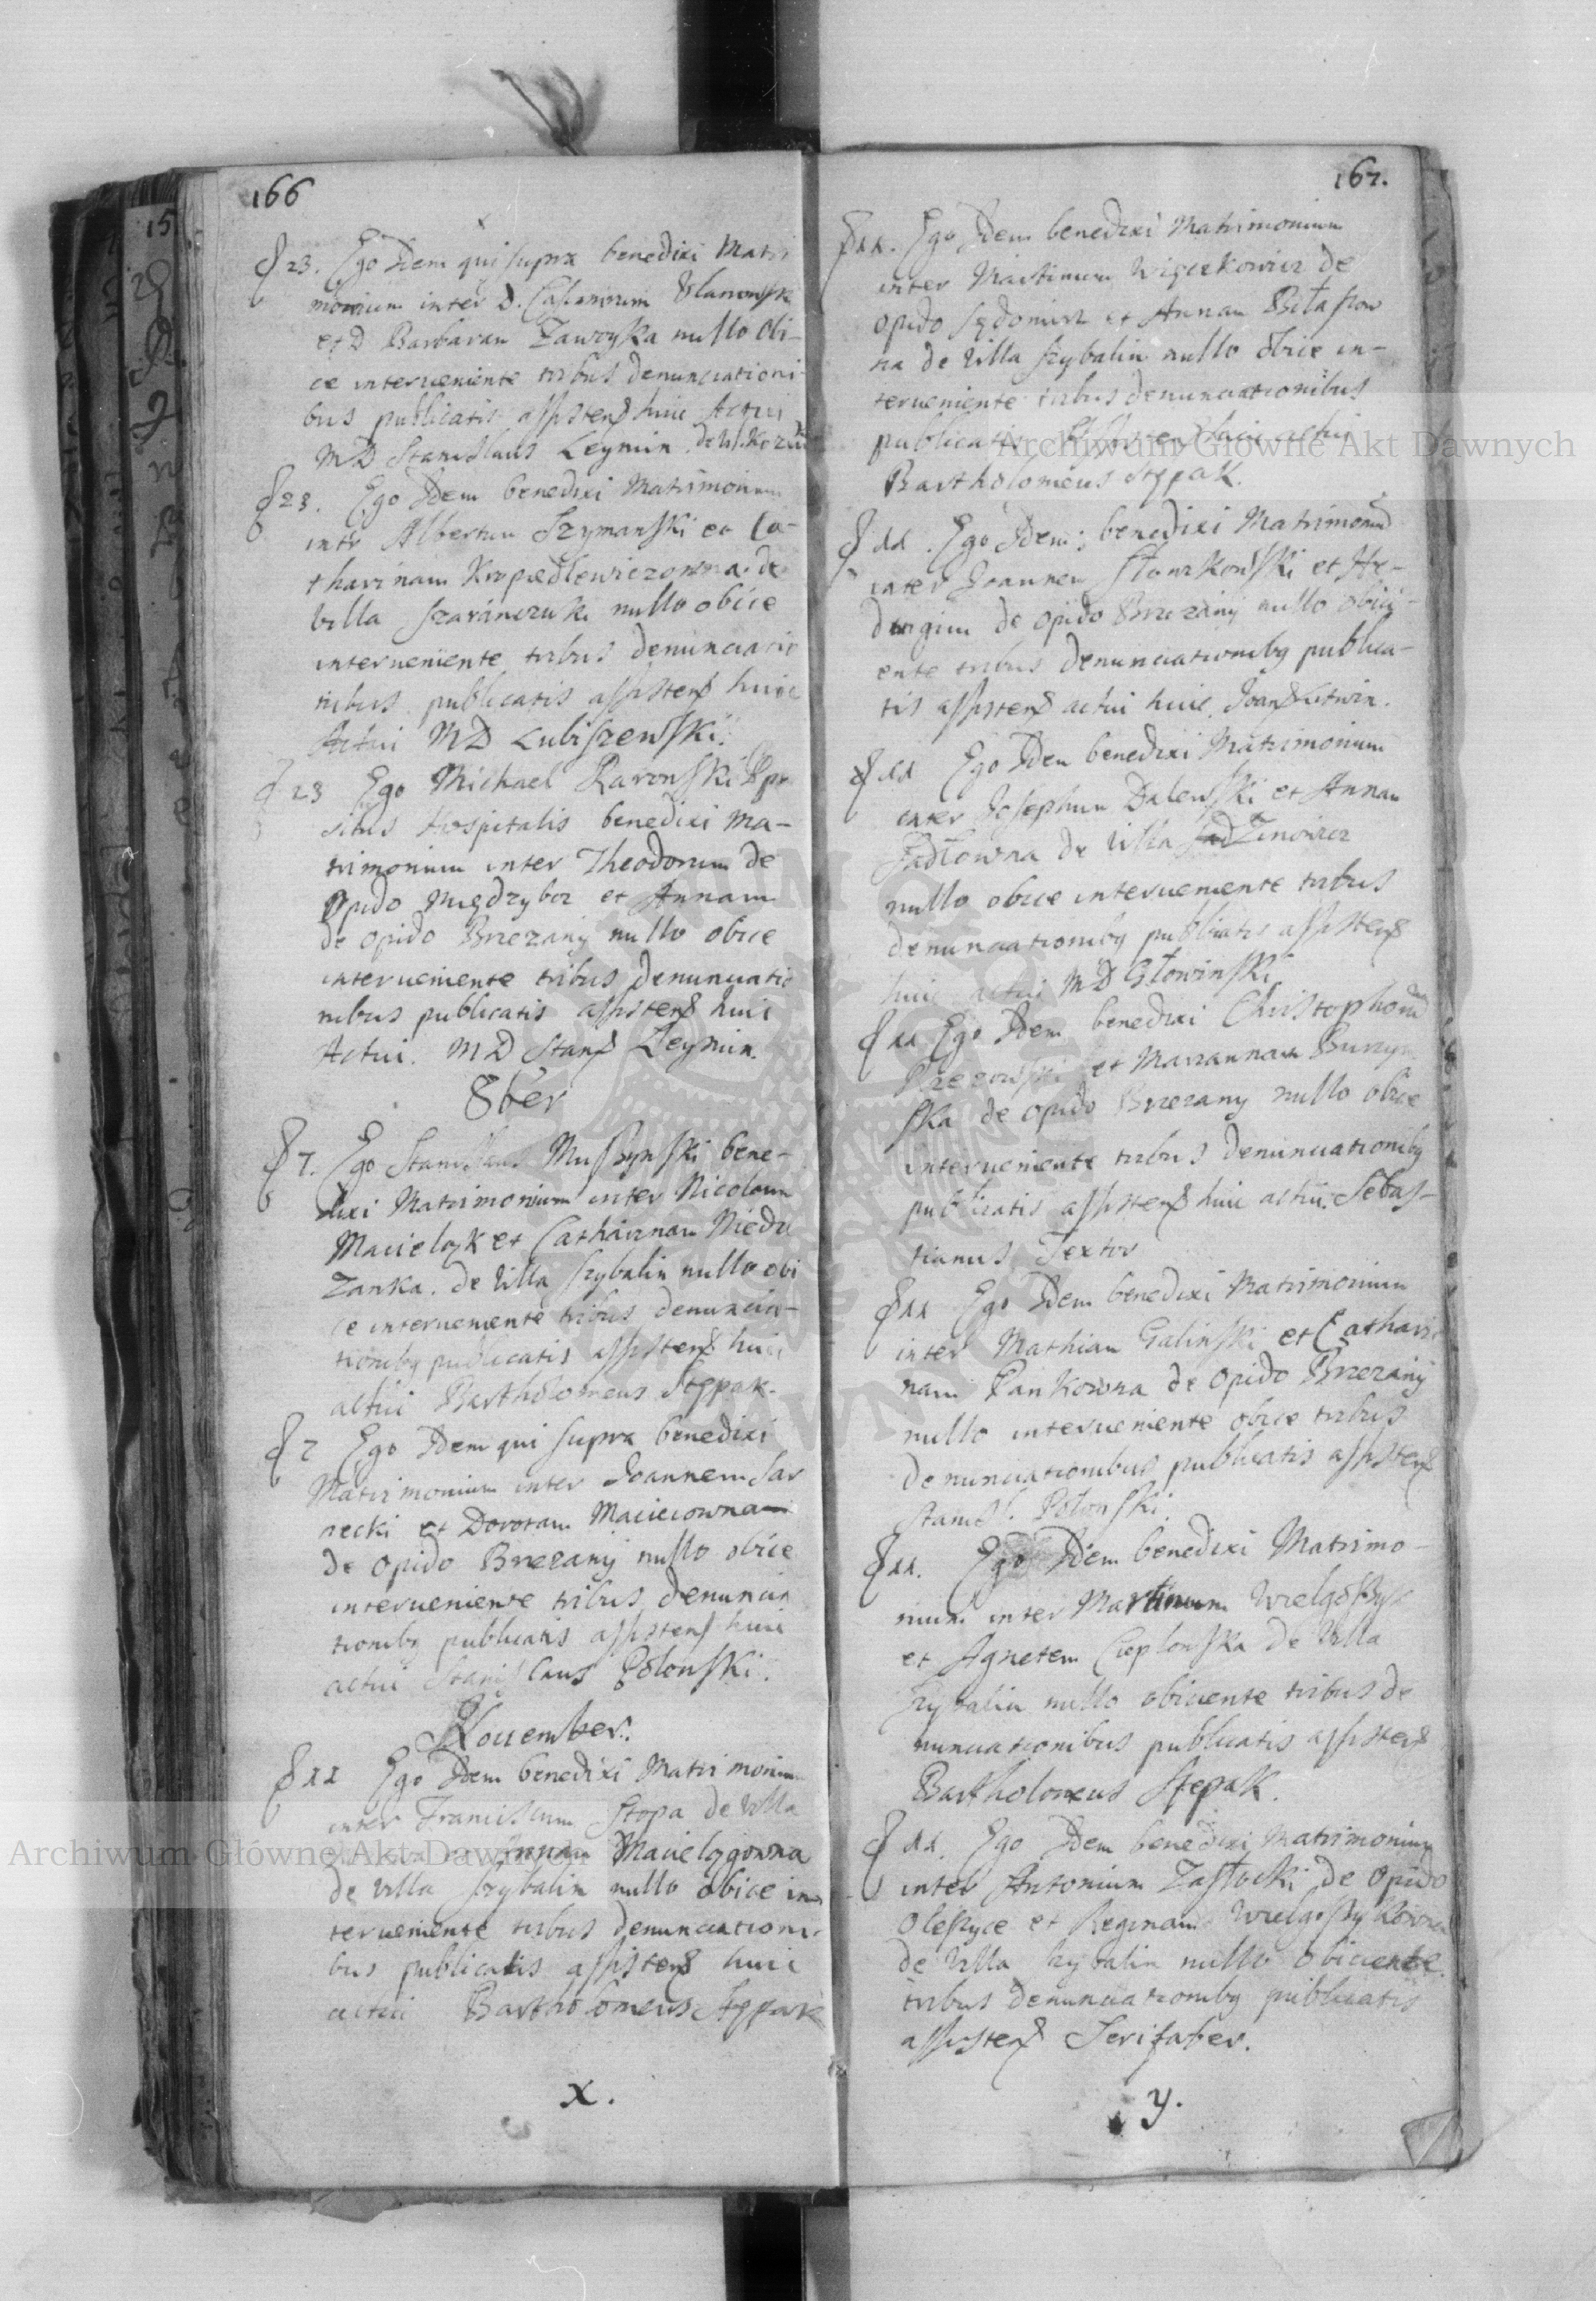 166
23. Ego Idem qui supra benedixi Matri
monium inter D. Casimirum Ulanowski
et D Barbaram Zawzyka nullo obi-
ce interueniente tribus denunciationi-
bus publicatis assistens huic Actui
MD Stanislaus Leymin
23. Ego Idem benedixi Matrimonium
intr Albertum Szymanski et Ca-
tharinam Kropiedlewiczowna de
Villa Szaranczuki nullo obice
interueniente tribus denunciatio
nibus publicatis assistens huic
Actui MD Lubiszewski.
23 Ego Michael Raronski Ppo
situs Hospitalis benedixi Ma-
trimonium inter Theodorum de
Opido Międzyboz et Annam
de opido Brzezany nullo obice
interueniente tribus denunciatio
nibus publicatis assistens huic
Actui. MD Stans Leymin.
8ber
7. Ego Stanislaus Muszynski bene-
dixi Matrimonium inter Nicolaum
Macielczk et Catharinam Niedu
Zanka. de Villa Szybalin nullo obi
ce interueniente tribus denuncia-
tionibq publicatis assistens huic
actui Bartholomeus Stępak.
7 Ego Idem qui supra benedixi
Matrimonium inter Joannem Sar
necki et Dorotam Macieiownam
de opido Brzezany nullo obice
interueniente tribus denuncia
tionibq publicatis assistens huic
actui Stanislaus Polonski.
Nouember.
11 Ego Idem benedixi Matrimonium
inter Franciscum Stopa de Villa
Annam Macielczgowna
de Villa Szybalin nullo obice in
terueniente tribus denunciationi-
bus publicatis assistens huic
actui Bartholomeus Stępak
x.
167.
11. Ego Idem benedixi Matrimonium
inter Martinum Więczkowicz de
opido Sędomirz et Annam Bilaszow
na de Villa Szybalin nullo obice in-
terueniente tribus denunciationibus
publicatis Assistens huic actui
Bartholomeus Stępak.
11. Ego Idem benedixi Matrimonium
inter Joannem Słomkowski et He-
duigim de opido Brzezany nullo obici-
ente tribus denunciationibq publica-
tis assistens actui huic. Joans Litwin.
11 Ego Idem benedixi Matrimonium
inter Josephum Dalewski et Annam
Sadłowna de Villa
nullo obice interueniente tribus
denunciationibq publicatis assistens
huic actui MD Głowinski
11 Ego Idem benedixi Christophorum
Rzezowski et Mariannam Burzyn
ska de opido Brzezany nullo obice
interueniente tribus denunciationibq
publicatis assistens huic actui. Sebas-
tianus Textor
11 Ego Idem benedixi Matrimonium
inter Mathiam Galinski et Cathari
nam Pankowna de opido Brzezany
nullo interueniente obice tribus
denunciationibus publicatis assistens
Stanisl. Polonski.
11. Ego Idem benedixi Matrimo-
nium inter Martinum Wielgoszyk
et Agnetem Cieplonska de Villa
Szybalin nullo obiciente tribus de
nunciationibus publicatis assistens
Bartholomeus Stepak.
11. Ego Idem benedixi Matrimonium
inter Antonium Zastocki de opido
Oleszyce et Reginam Wielgoszykowna
de Villa Szybalin nullo obiciente
tribus denunciationibq publicatis
assistens Serifaber.
y.
Archiwum Główne Akt Dawnych
Archiwum Główne Akt Dawnych